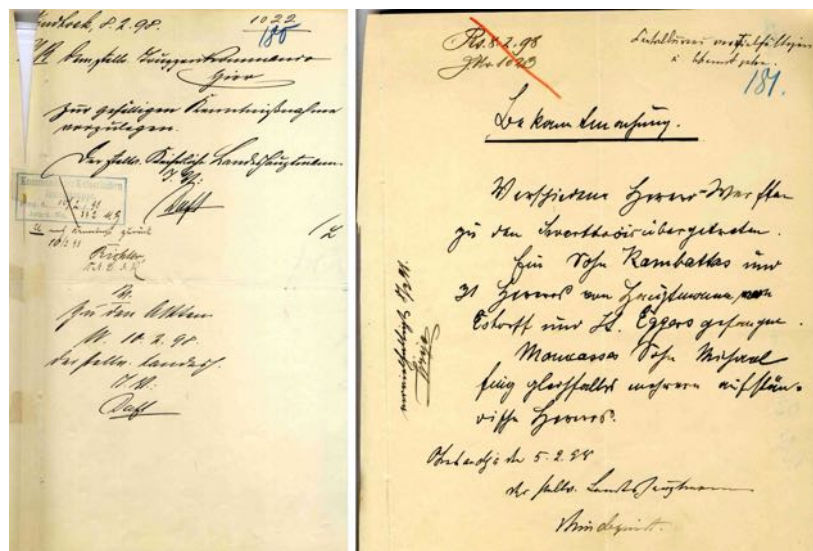 Windhoek, 8.2.98.
1022
180
Dem stellv. Truppenkommando
hier
zur gefälligen Kenntnißnahme
vorzulegen.
Der stellv. Kaiserliche Landeshauptmann.
J. V.:
Duft
10/2 98
Richter
V.
Zu den Akten
W. 10.2.98.
Der stellv. Landesh.
J. V.
Duft
Ks. 8.2.98
JNo. 1023
181.
Bekanntmachung.
Verschiedene Herero-Werften
zu den Swartboois übergetreten.
Ein Sohn Kambattas und
31 Hereros von Hauptmann von
Estorff und Lt. Eggers gefangen.
Manasses Sohn Michael
fing gleichfalls mehrere aufstän-
dische Hereros.
vervielfältigt 8/2 98.
5.2.98
der stellv. Landeshauptmann